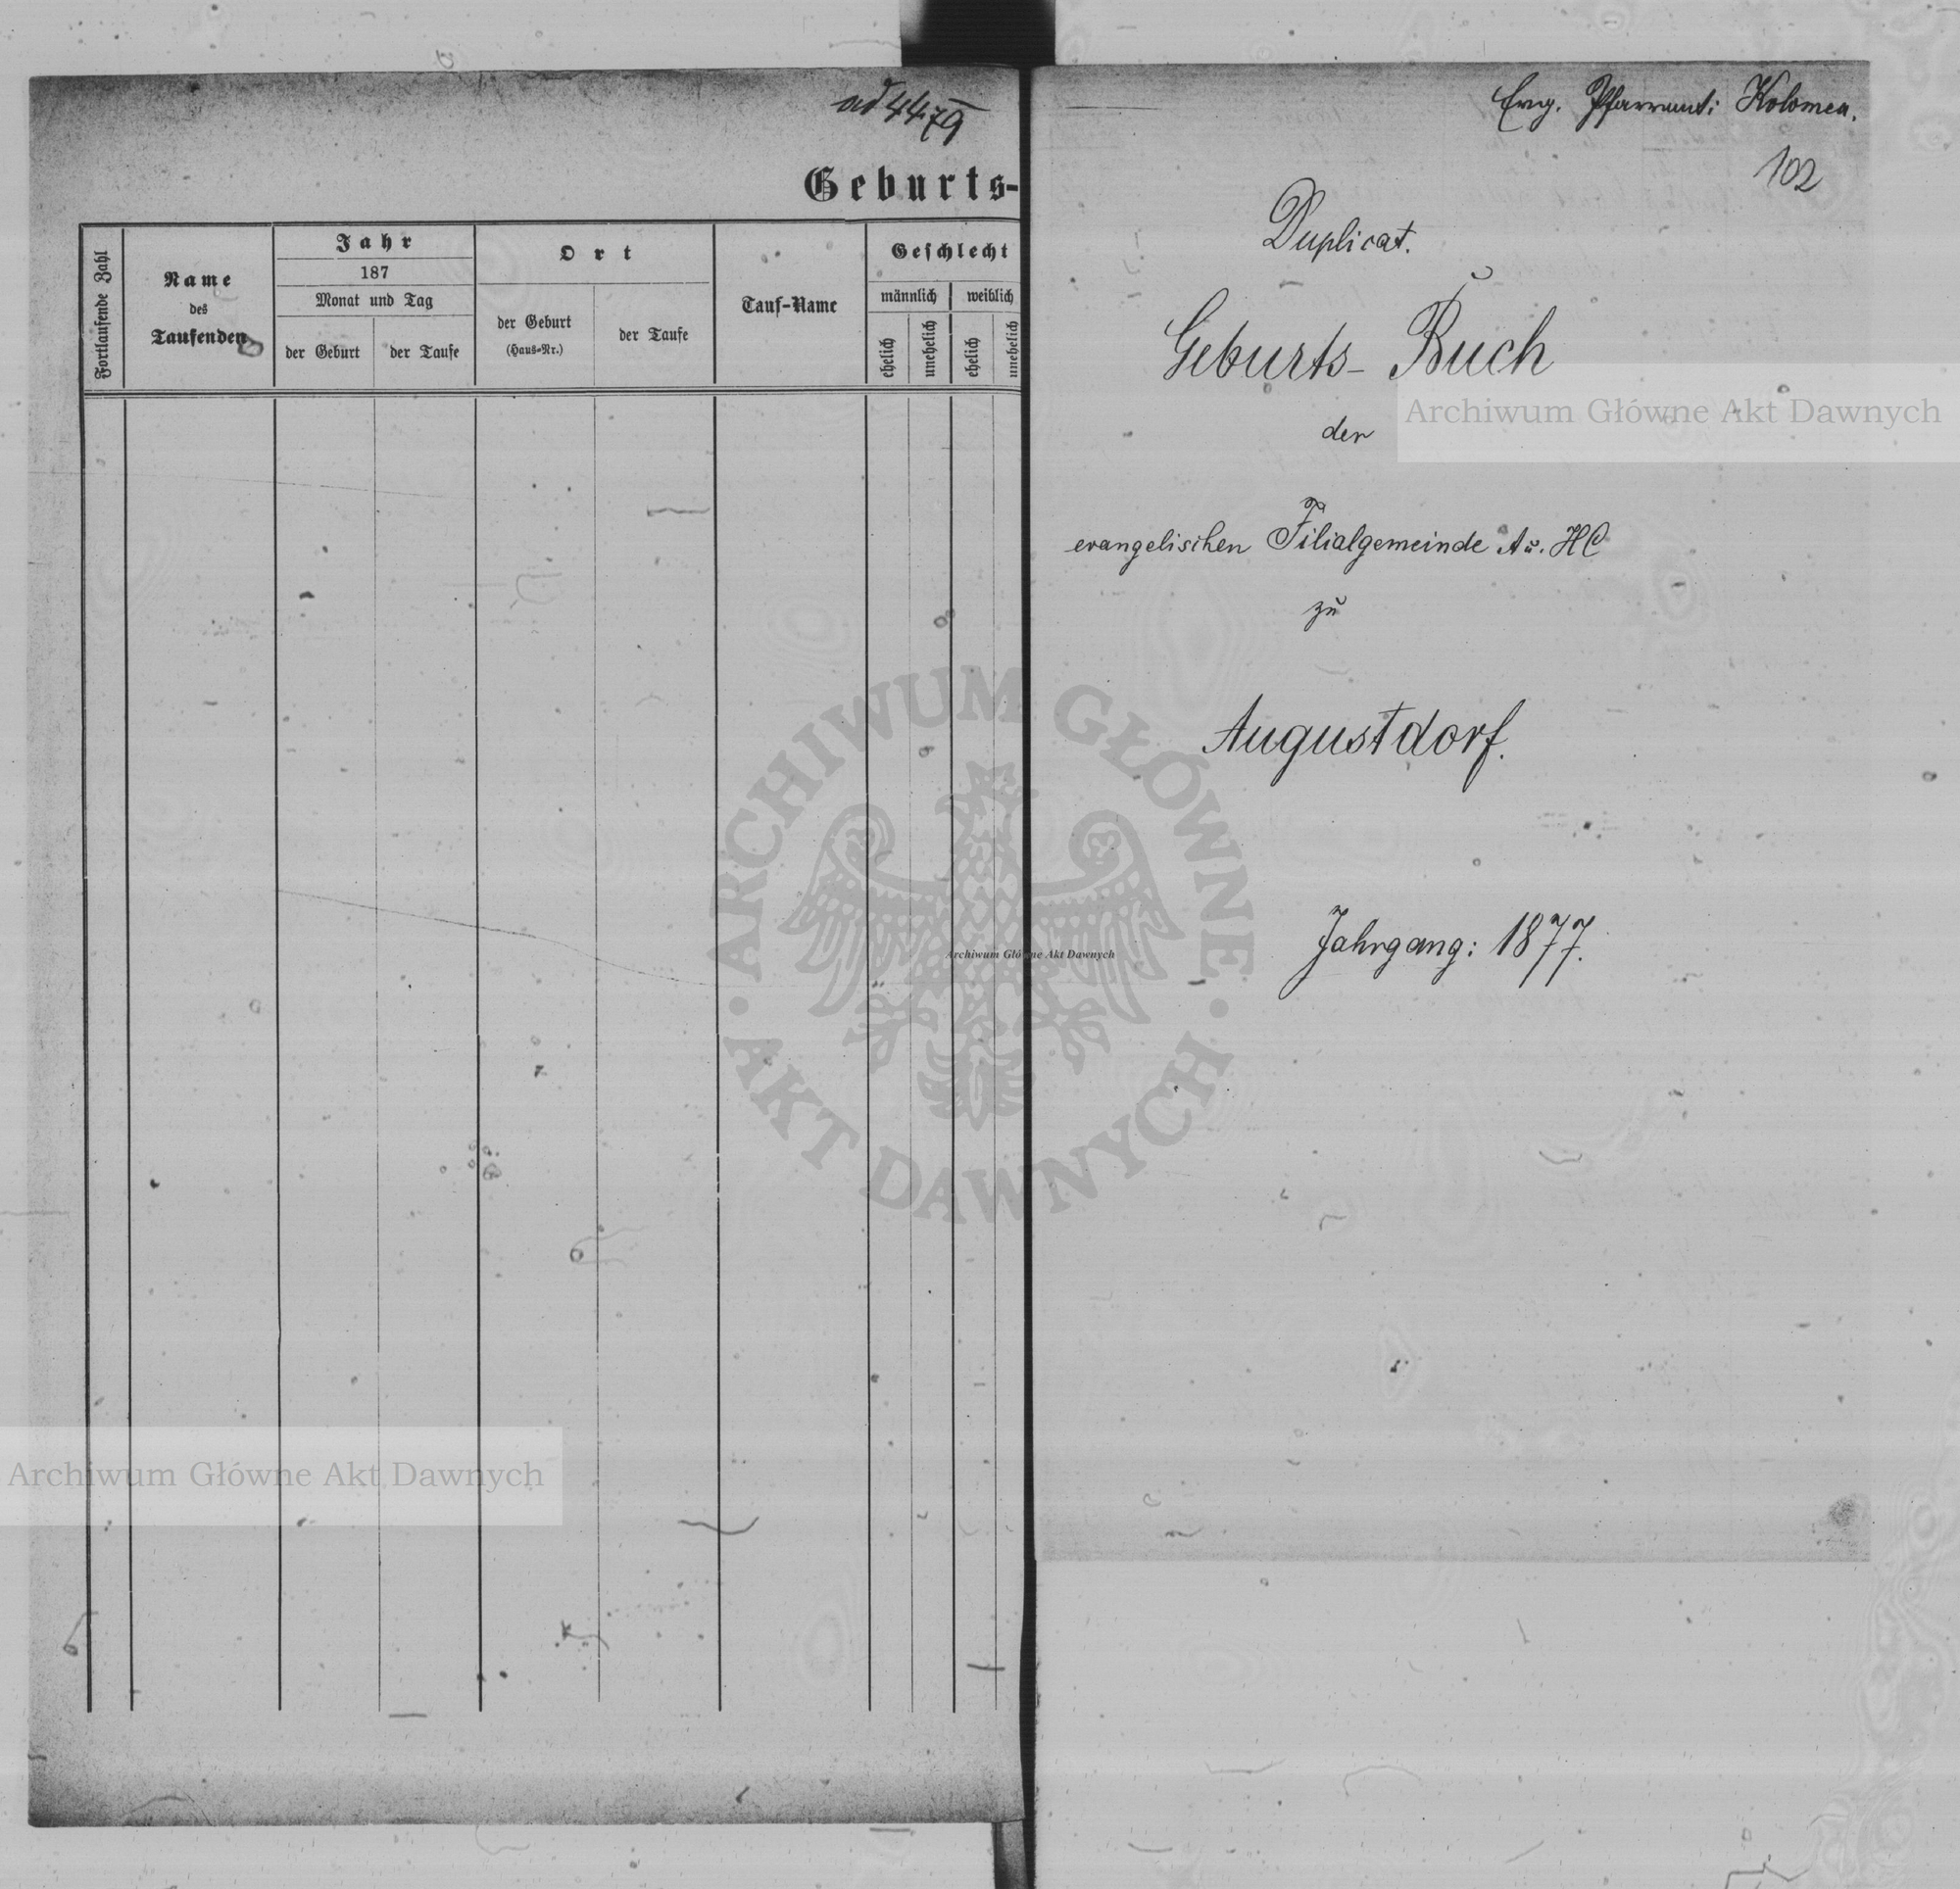 ad 44/79
Geburts-
Fortlaufende Zahl
Name
des
Taufenden
Jahr
187
Monat und Tag
der Geburt
der Taufe
Ort
der Geburt
(Haus-Nr.)
der Taufe
Tauf-Name
Geschlecht
männlich
weiblich
ehelich
unehelich
ehelich
unehelich
Evng. Pfarramt: Kolomea.
102
Duplicat.
Geburts-Buch
der
evangelischen Filialgemeinde A u. HC
zu
Augustdorf.
Jahrgang: 1877.
Archiwum Główne Akt Dawnych
ARCHIWUM GŁÓWNE
AKT DAWNYCH
Archiwum Główne Akt Dawnych
Archiwum Główne Akt Dawnych